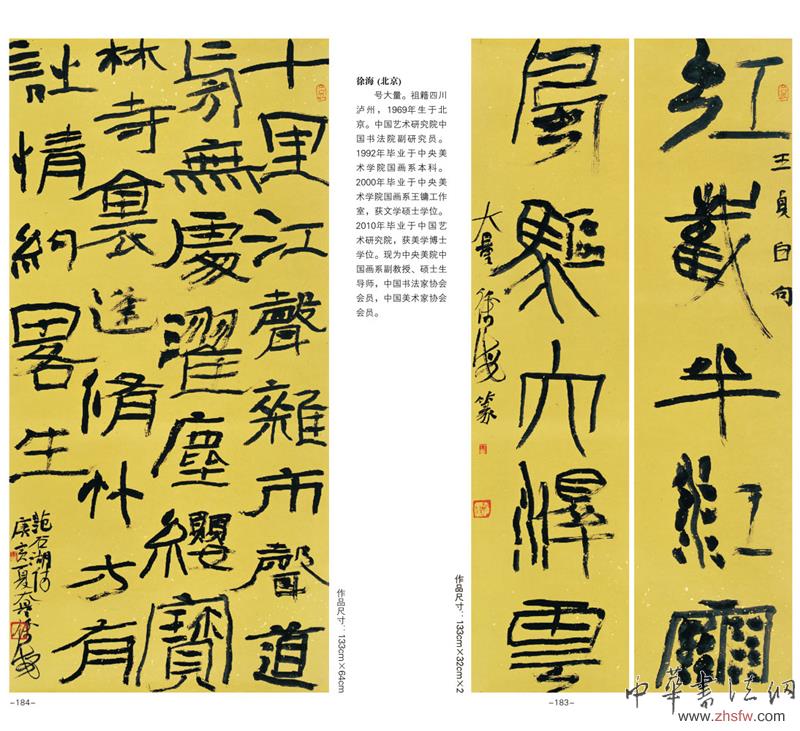 十里江聲雜市聲道
旁無處濯塵纓寶
林寺裏逢脩竹方有
詩情約略生
範石湖詩
庚寅夏大量徐海
作品尺寸：133cm×64cm
-184-
徐海 (北京)
号大量。祖籍四川
泸州，1969年生于北
京。中国艺术研究院中
国书法院副研究员。
1992年毕业于中央美
术学院国画系本科。
2000年毕业于中央美
术学院国画系王镛工作
室，获文学硕士学位。
2010年毕业于中国艺
术研究院，获美学博士
学位。现为中央美院中
国画系副教授、硕士生
导师，中国书法家协会
会员，中国美术家协会
会员。
虹截半江雨
王貞白句
風驅大澤雲
大量徐海篆
作品尺寸：133cm×32cm×2
-183-
中華書法網
www.zhsfw.com